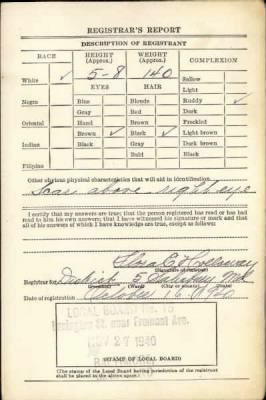 REGISTRAR'S REPORT
DESCRIPTION OF REGISTRANT
RACE HEIGHT (Approx.) WEIGHT (Approx.) COMPLEXION
White ✓ 5-8 140 Sallow
EYES HAIR Light
Negro Blue Blonde Ruddy ✓
Gray Red Dark
Oriental Hazel Brown Freckled
Brown ✓ Black ✓ Light brown
Indian Black Gray Dark brown
Bald Black
Filipino
Other obvious physical characteristics that will aid in identification
Scar above right eye
I certify that my answers are true; that the person registered has read or has had
read to him his own answers; that I have witnessed his signature or mark and that
all of his answers of which I have knowledge are true, except as follows:
E. Holloway
(Signature of registrar)
Registrar for District 5 Salisbury Md
(Precinct) (Ward) (City or county) (State)
Date of registration October 16 1940
LOCAL BOARD No.
Lexington St. near Fremont Ave.
NOV 27 1940
(STAMP OF LOCAL BOARD)
(The stamp of the Local Board having jurisdiction of the registrant
shall be placed in the above space.)